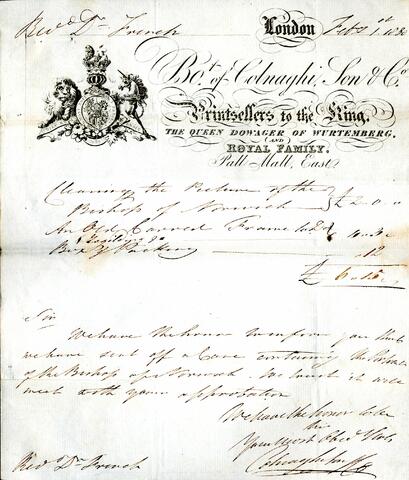 Revd Dr French London Feby 1st
Bot. of Colnaghi, Son & Co.
Printsellers to the King.
THE QUEEN DOWAGER OF WURTEMBERG.
(AND)
ROYAL FAMILY.
Pall Mall, East
Cleaning the Picture of the
Bishop of Norwich £2 0 0
An Old Carved Frame
Box & Packing 12
£ 6.15
Sir
We have the honor to inform you that
we have sent off a Case containing the Picture
of the Bishop of Norwich. We trust it will
meet with your approbation
We have the honor to be
Sir
Your Most Obed
Colnaghi Son & Co
Revd Dr French